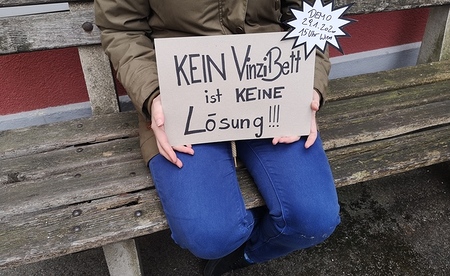 KEIN VinziBett
ist KEINE
Lösung!!!
DEMO
29.1.2020
15 Uhr Wien